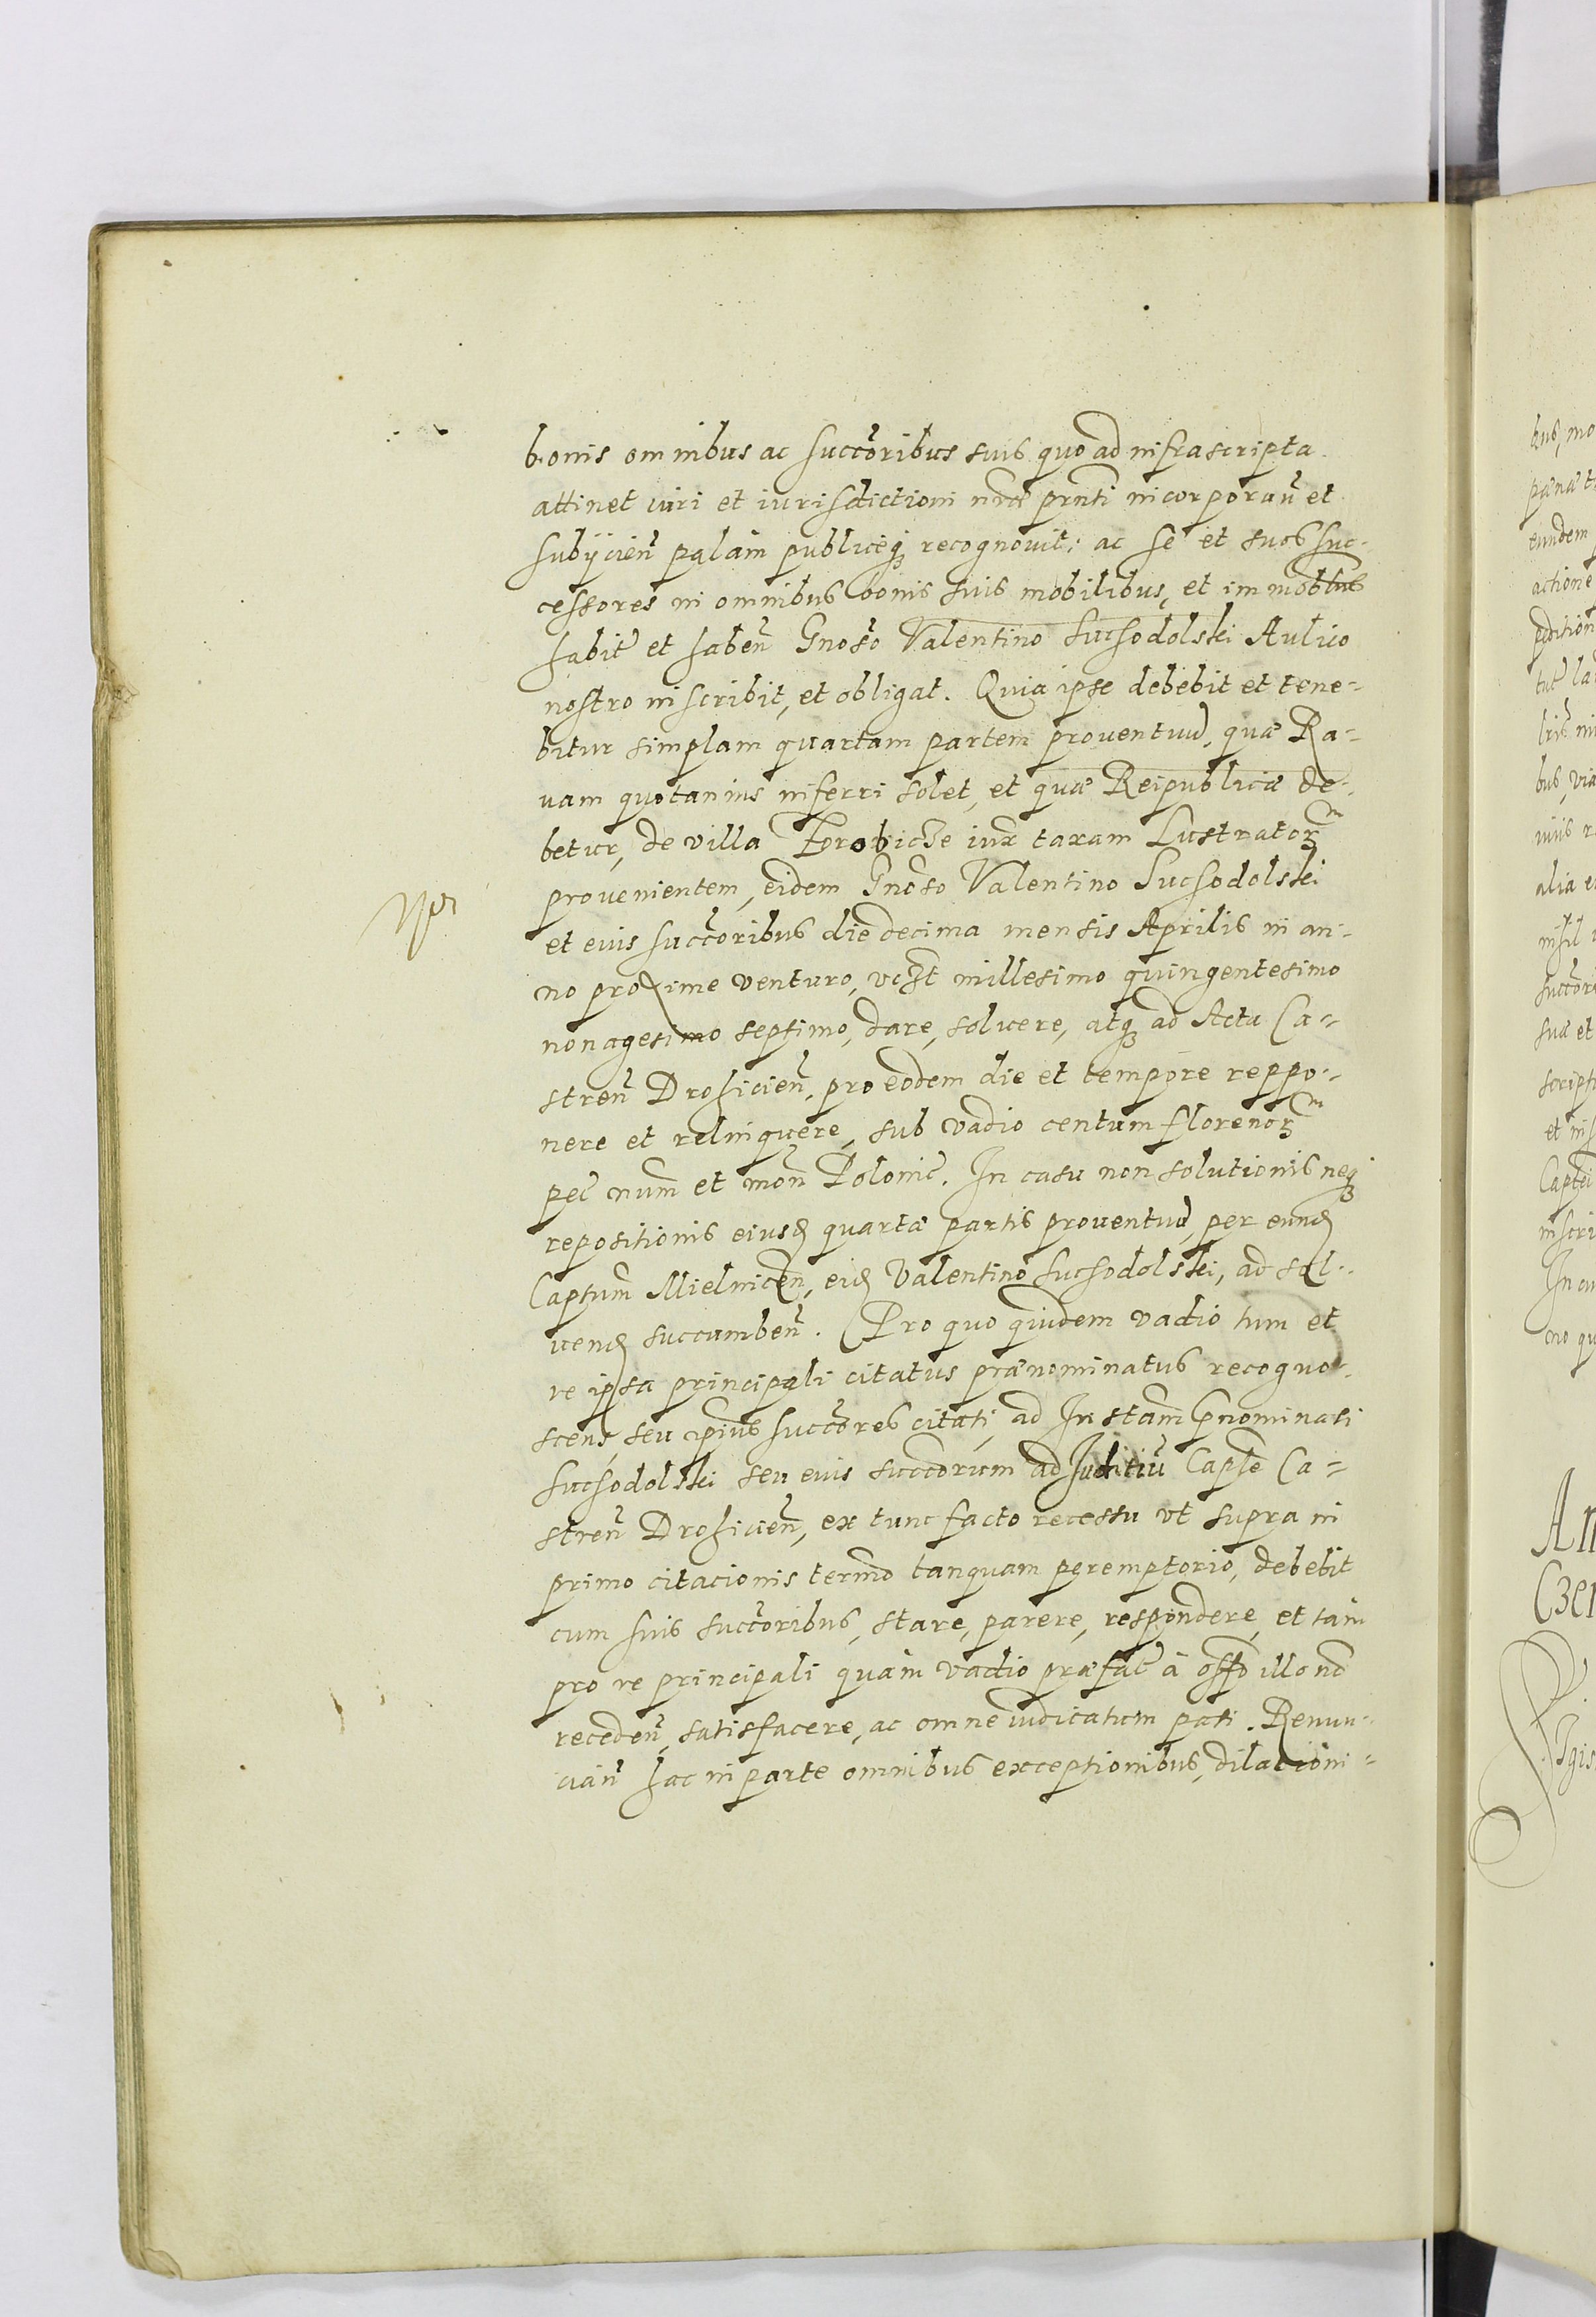 bonis omnibus ac succ̃oribus suis quo ad infrascripta
attinet iuri et iurisdictioni nr̃æ prñti incorporañ et
subijcień palàm publiceq́ȝ recognovit: ac se et suos suc-
cessores in omnibus bonis suis mobilibus, et immobilibus
habit̃ et habeñ Gnoso Valentino Suchodolski Aulico
nostro inscribit, et obligat. Quia ipse debebit et tene-
bitur simplam quartam partem proventuũ, quæ Ra-
vam quotannis inferri solet, et quæ Reipublicæ de-
betur, de villa iux̃ taxam Lustratorȝm
provenientem, eidem Gnoso Valentino Suchodolski
et eius succ̃oribus die decima mensis Aprilis in an-
no proxime venturo, vcȝt millesimo quingentesimo
nonagesimo septimo, dare, soluere, atqȝ ad Acta Ca-
streñ Drohicieñ, pro eodem die et tempore reppo-
nere et relinquere, sub vadio centum florenorȝm
pec̃ num̃ et moñ Polonic̃. In casu non solutionis neqȝ
repositionis eiusd quartæ partis proventuũ, per eund
Captum̃ Mielniceñ, eid Valentino Suchodolski, ad sol-
vend succumbeñ. Pro quo quidem vadio tum et
re ipsa principali citatus prænominatus recogno-
scens, seu ipius succ̃ores citati, ad Instam̃ p̃nominati
Suchodolski seu eius succ̃orum ad Juditiũ Capt̃e Ca-
streñ Drohicieñ, ex tunc facto recessu vt supra in
primo citacionis term̃o tanquam peremptorio, debebit
cum suis succ̃oribus, stare, parere, respondere, et tàm
pro re principali quàm vadio præfat̃ à off̃o illo nõ
recedeñ, satisfacere, ac omne iudicatum pati. Renun-
ciań hac in parte omnibus exceptionibus, dilationi-